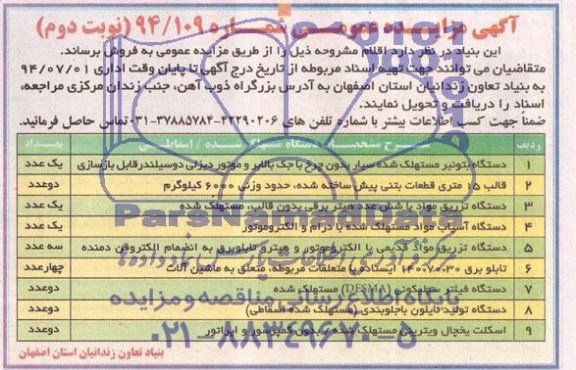 آگهی مزایده عمومی شماره ۹۴/۱۰۹ (نوبت دوم)
این بنیاد در نظر دارد اقلام مشروحه ذیل را از طریق مزایده عمومی به فروش برساند.
متقاضیان می توانند جهت تهیه اسناد مربوطه از تاریخ درج آگهی تا پایان وقت اداری ۹۴/۰۷/۰۱
به بنیاد تعاون زندانیان استان اصفهان به آدرس بزرگراه ذوب آهن، جنب زندان مرکزی مراجعه،
اسناد را دریافت و تحویل نمایند.
ضمناً جهت کسب اطلاعات بیشتر با شماره تلفن های ۲۲۲۹۰۲۰۶-۳۷۸۸۵۷۸۴-۰۳۱ تماس حاصل فرمائید.
ردیف شرح مشخصات دستگاه مستهلک شده / اسقاطی تعداد
۱ دستگاه بتونیر مستهلک شده سیار بدون چرخ با جک بالابر و موتور دیزلی دوسیلندر قابل بازسازی یک عدد
۲ قالب ۱۵ متری قطعات بتنی پیش ساخته شده، حدود وزنی ۶۰۰۰ کیلوگرم دوعدد
۳ دستگاه تزریق مواد با شش عدد هیتر برقی بدون قالب، مستهلک شده یک عدد
۴ دستگاه آسیاب مواد مستهلک شده با درام و الکتروموتور یک عدد
۵ دستگاه تزریق مواد قدیمی با الکتروموتور و هیتر و تابلوبرق به انضمام الکتروفن دمنده سه عدد
۶ تابلو برق ۳۰*۷۰*۱۴۰ ایستاده با متعلقات مربوطه، متعلق به ماشین آلات چهارعدد
۷ دستگاه فیلتر سیلیکونی (DESMA) مستهلک شده دوعدد
۸ دستگاه تولید نایلون باجلوبندی (مستهلک شده اسقاطی) دوعدد
۹ اسکلت یخچال ویترینی مستهلک شده / بدون کمپرسور و اپراتور دوعدد
بنیاد تعاون زندانیان استان اصفهان
ParsNamadData
پایگاه اطلاع رسانی مناقصه و مزایده
۰۲۱-۸۸۳۴۹۶۷۰-۵